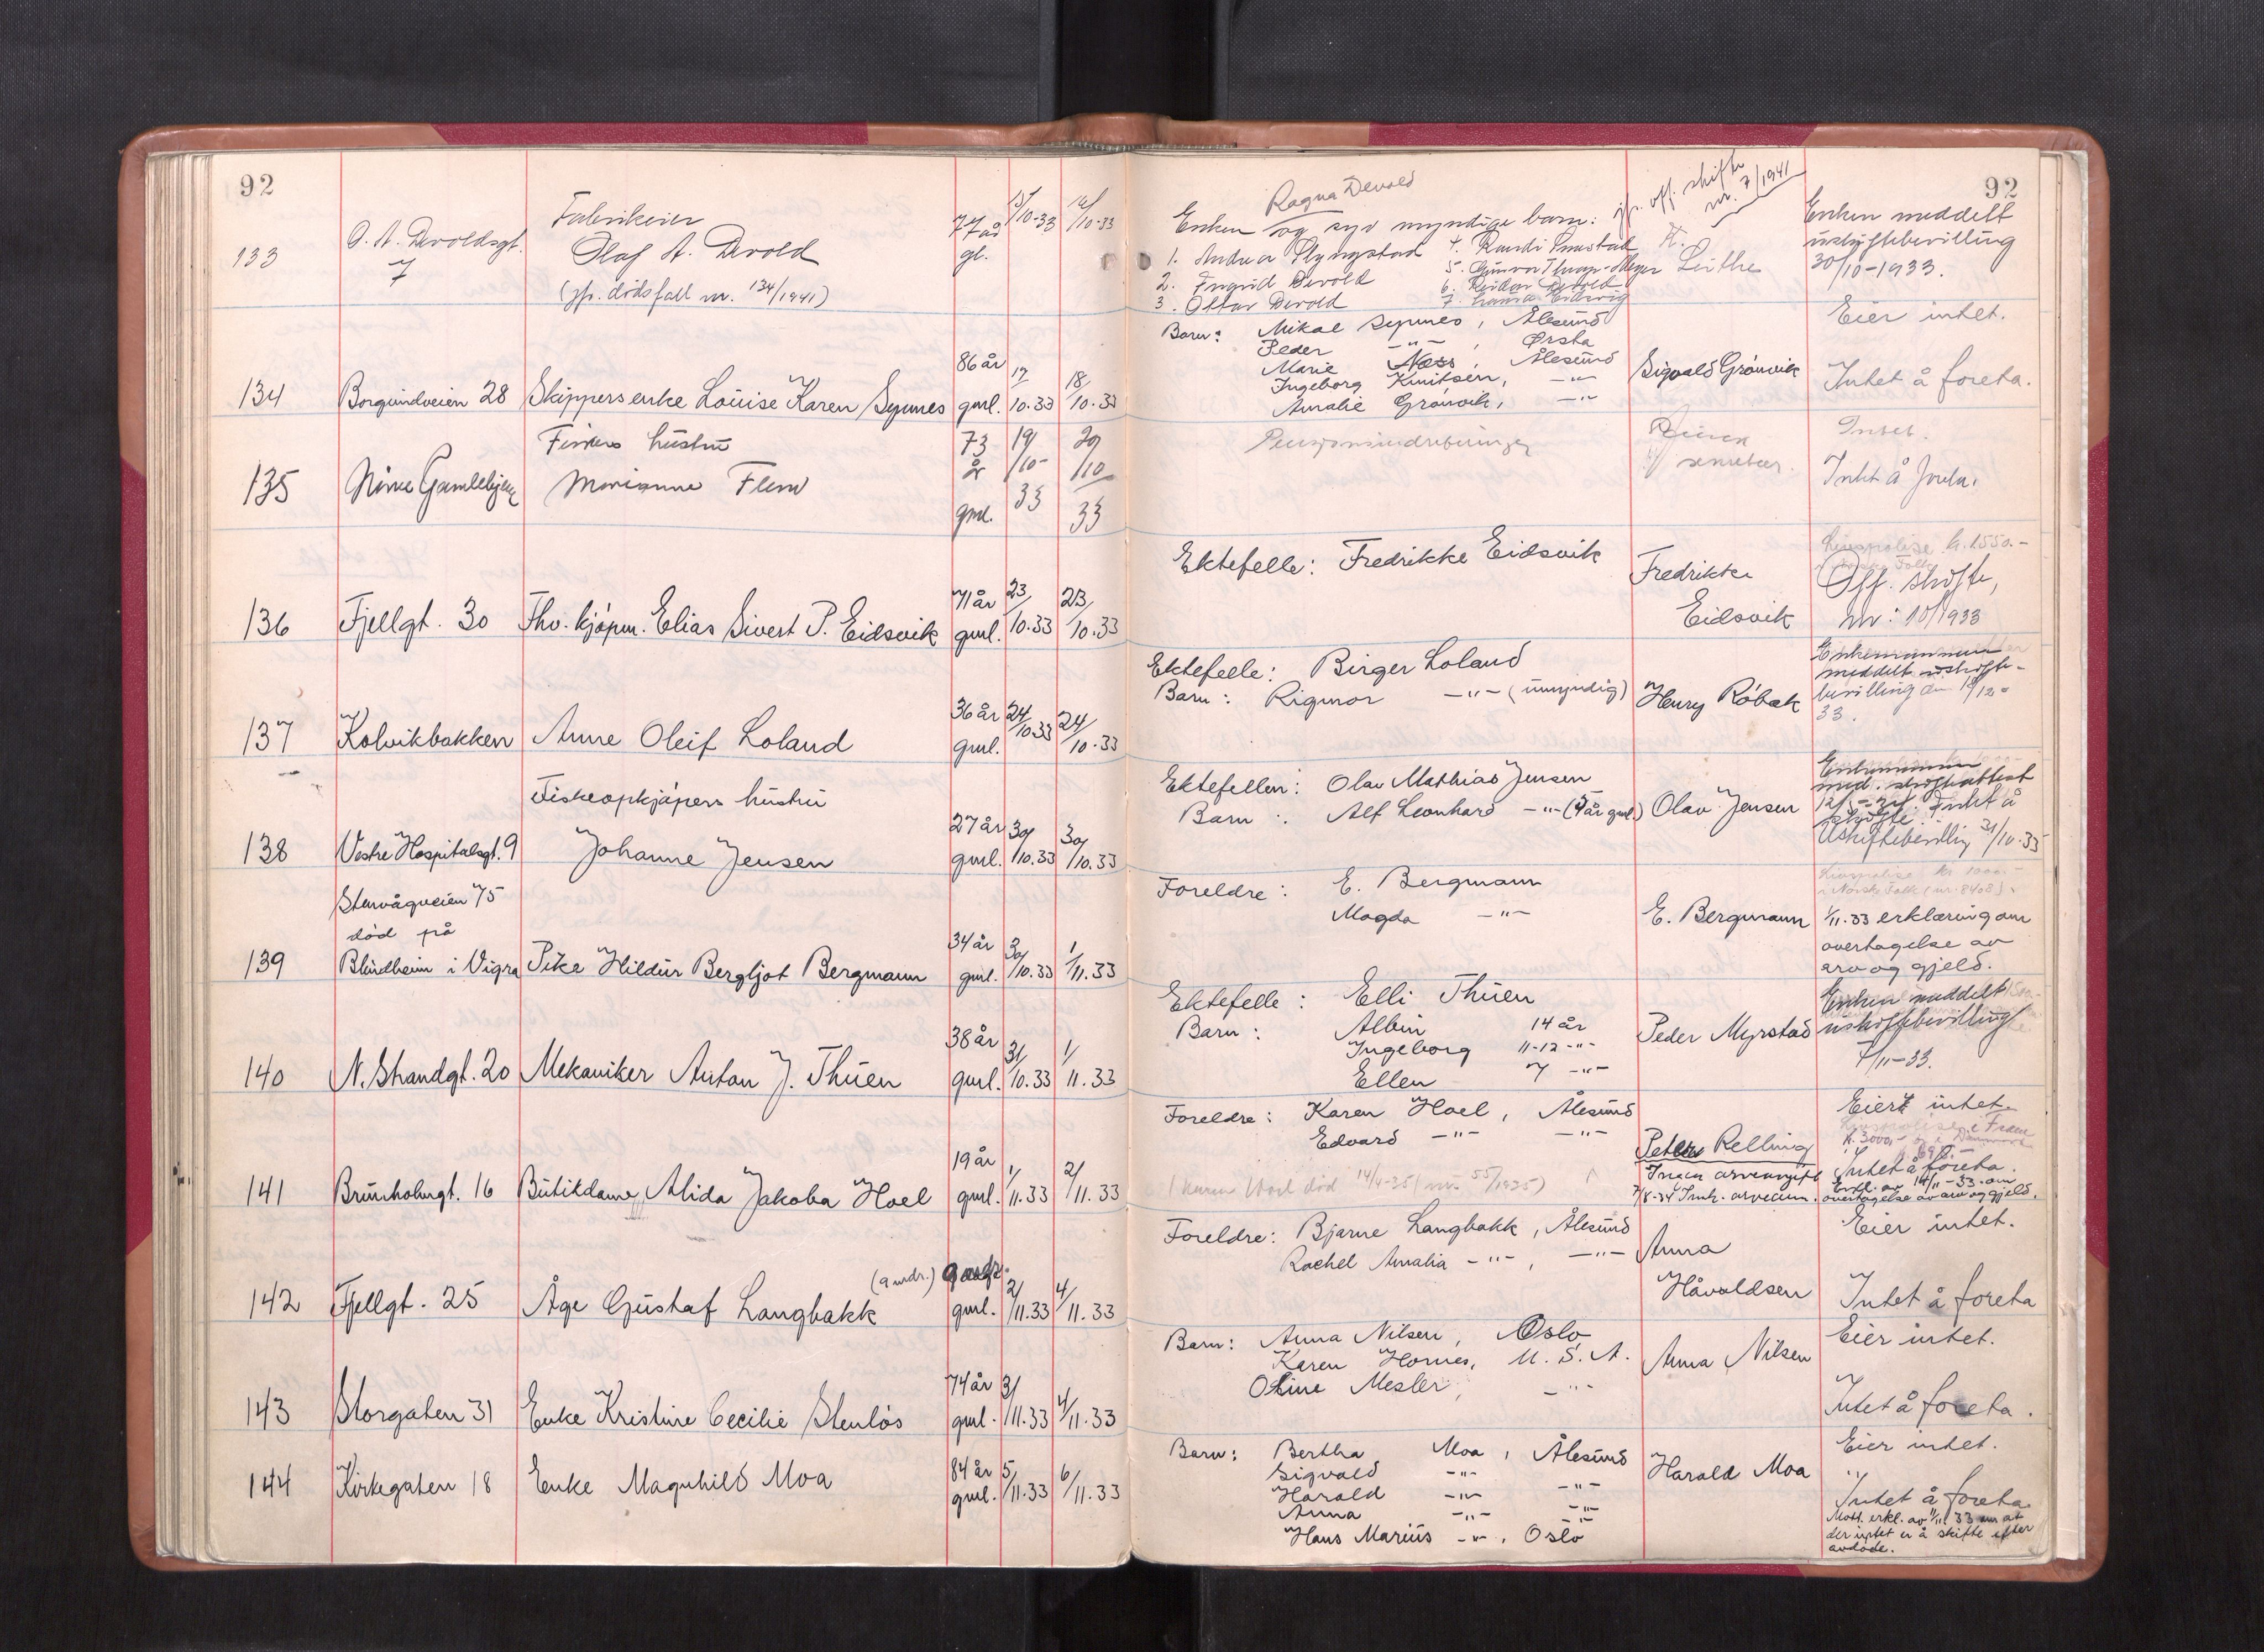 92
92
133
O. A. Devoldsgt. 7
Fabrikeier
Olaf A. Devold
(jfr. dødsfall nr. 134/1941)
77 år gl.
15/10-33
16/10-33
Ragna Devold
Enken og syv myndige barn:
jfr. off. skifte nr. 7/1941
1. Andrea Slyngstad
2. Ingrid Devold
3. Ottar Devold
4. Randi
5. Gunvor Thrap-Meyer
6. Reidar Devold
7. Laura
Enken meddelt
uskiftebevilling
30/10-1933.
134
Borgundveien 28
Skippers enke Louise Karen Synnes
86 år gml.
17/10.33
18/10.33
Barn: Mikal Synnes, Ålesund
Peder -"-, Ørsta
Marie Næss, Ålesund
Ingeborg Knutsen, -"-
Amalie Grønvik, -"-
Sigvald Grønvik
Eier intet.
Intet å foreta.
135
Nørve Gamlehjem
Fiskers hustru
Marianne Flem
73 år gml.
19/10-33
20/10 33
sekretær.
Intet.
Intet å foreta.
136
Fjellgt. 30
Fhv. kjøpm. Elias Sivert P. Eidsvik
71 år gml.
23/10.33
23/10.33
Ektefelle: Fredrikke Eidsvik
Fredrikke
Eidsvik
Livspolise kr. 1550.-
Off. skifte,
nr: 10/1933
137
Kolvikbakken
Anne Oleif Loland
36 år gml.
24/10 33
24/10.33
Ektefelle: Birger Loland
Barn: Rigmor -"- (umyndig)
Henry Røbak
Enkemannen
meddelt uskifte-
bevilling den 18/12-
33.
138
Vestre Hospitalsgt. 9
Fiskeopkjøpers hustru
Johanne Jensen
27 år gml.
30/10.33
30/10.33
Ektefellen: Olav Mathias Jensen
Barn: Alf Leonhard -"- (4 år gml.)
Olav Jensen
Enkemannen
med. skifteattest
Intet å
skifte.
Uskiftebevilling 31/10-33
139
Stenvågveien 75
død på
Blindheim i Vigra
Pike Hildur Bergljot Bergmann
34 år gml.
30/10.33
1/11.33
Foreldre: E. Bergmann
Magda -"-
E. Bergmann
Livspolise kr 1000.-
i Norske Folk (nr. 8408).
1/11.33 erklæring om
overtagelse av
arv og gjeld.
140
N. Strandgt. 20
Mekaniker Anton J. Thuen
38 år gml.
31/10.33
1/11.33
Ektefelle: Elli Thuen
Barn: Albin 14 år
Ingeborg 11-12 -"-
Ellen 7 -"-
Peder Myrstad
Enken meddelt
uskiftebevilling
7/11-33.
141
Brunholmgt. 16
Butikdame Alida Jakoba Hoel
19 år gml.
1/11.33
2/11.33
Foreldre: Karen Hoel, Ålesund
Edvard -"- -"-
(Karen Hoel død 14/4-35 (nr. 55/1935)
Petter Relling
Ingen arveavgift
7/8-34 Innb. arveann.
Eiert intet.
Intet å foreta.
Erkl. av 14/11-33 om
overtagelse av arv og gjeld.
142
Fjellgt. 25
Åge Gustaf Langbakk
(9 mdr.)
gml.
2/11.33
4/11.33
Foreldre: Bjarne Langbakk, Ålesund
Rachel Amalia -"-, -"-
Anna
Håvoldsen
Eier intet.
Intet å foreta
143
Storgaten 31
Enke Kristine Cecilie Stenløs
74 år gml.
3/11.33
4/11.33
Barn: Anna Nilsen, Oslo
Karen Hornes, U. S. A.
Oline Mesler, -"-
Anna Nilsen
Eier intet.
Intet å foreta.
144
Kirkegaten 18
Enke Magnhild Moa
84 år gml.
5/11.33
6/11.33
Barn: Bertha Moa, Ålesund
Sigvald -"-
Harald -"- -"-
Anna -"- -"-
Hans Marius -"-, Oslo
Harald Moa
Eier intet.
Intet å foreta.
Mott. erkl. av 11/11 33 om at
der intet er å skifte efter
avdøde.